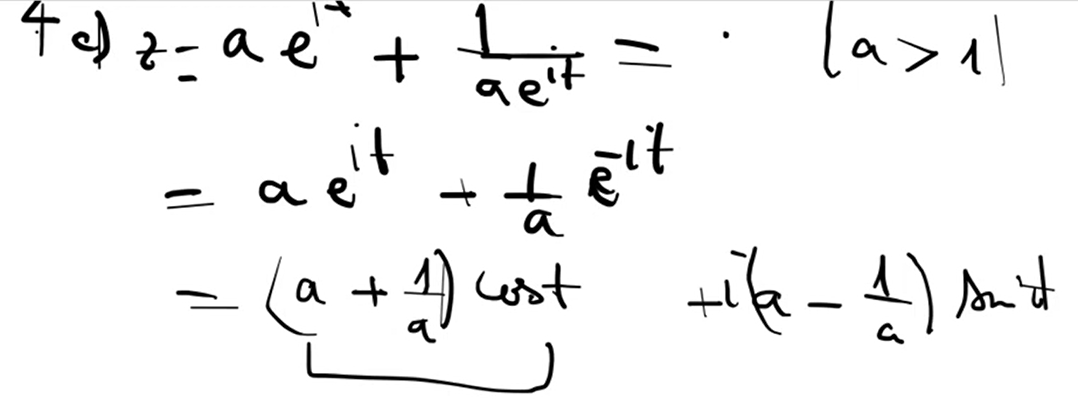 4 c) z = a e^{it} + \frac{1}{a e^{it}} = . |a > 1|
= a e^{it} + \frac{1}{a} e^{-it}
= (a + \frac{1}{a}) cost + i(a - \frac{1}{a}) sin t